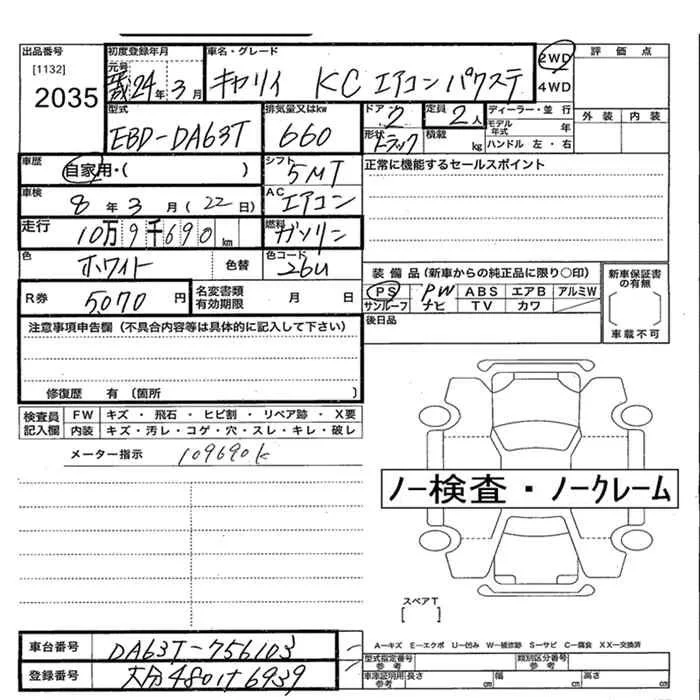 出品番号
[1132]
2035
初度登録年月
元号
24年 3月
車名・グレード
キャリイ KC エアコン パワステ
2WD
4WD
評価点
外装 内装
型式
EBD-DA63T
排気量又はkw
660
ドア
2
形状
トラック
定員
2人
積載
kg
ディーラー・並行
モデル年式 年
ハンドル 左・右
車歴
自家用・( )
シフト
5MT
正常に機能するセールスポイント
車検
8年 3月 (22日)
AC
エアコン
走行
10万9千690km
燃料
ガソリン
色
ホワイト 色替
色コード
26U
装備品(新車からの純正品に限り○印)
PS PW ABS エアB アルミW
サンルーフ ナビ TV カワ
新車保証書の有無
[ ]
車載不可
R券
5,070円
名変書類有効期限 月 日
後日品
注意事項申告欄(不具合内容等は具体的に記入して下さい)
修復歴 有(箇所 )
検査員記入欄
FW キズ・飛石・ヒビ割・リペア跡・X要
内装 キズ・汚レ・コゲ・穴・スレ・キレ・破レ
メーター指示 109690k
ノー検査・ノークレーム
スペアT
[ ]
車台番号
DA63T-756103
登録番号
大分480け6939
A－キズ E－エクボ U－凹み W－補修跡 S－サビ C－腐食 XX－交換済
型式指定番号参考
類別区分番号参考
車庫証明用参考 長さ cm 幅 cm 高さ cm